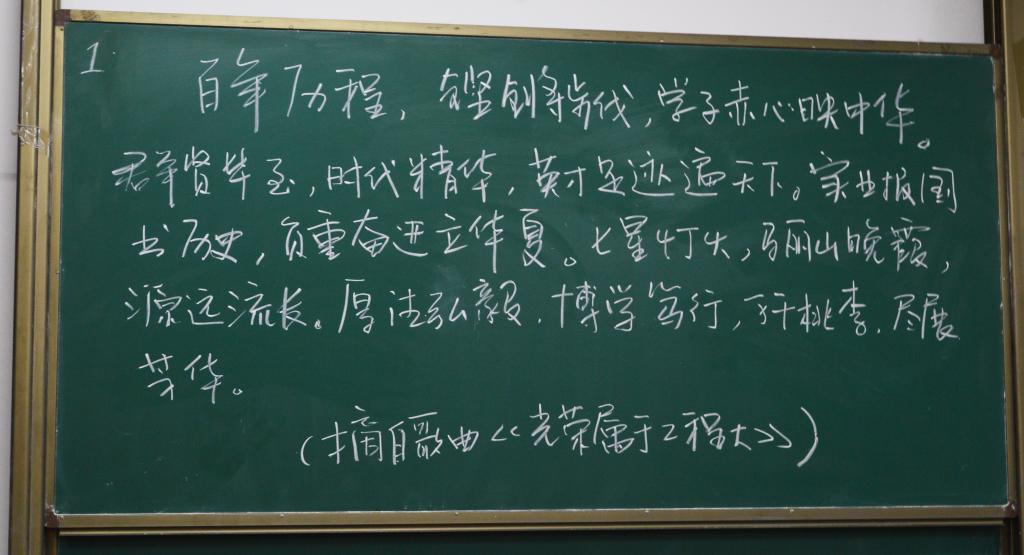 1
百年历程，坚创几代，学子赤心映中华。
群贤毕至，时代精华，英才足迹遍天下。实业报国
书历史，负重奋进立华夏。七星灯火，骊山晚霞，
源远流长。厚德弘毅，博学笃行，芬桃李，尽展
芳华。
(摘自歌曲<<光荣属于工程大>>)